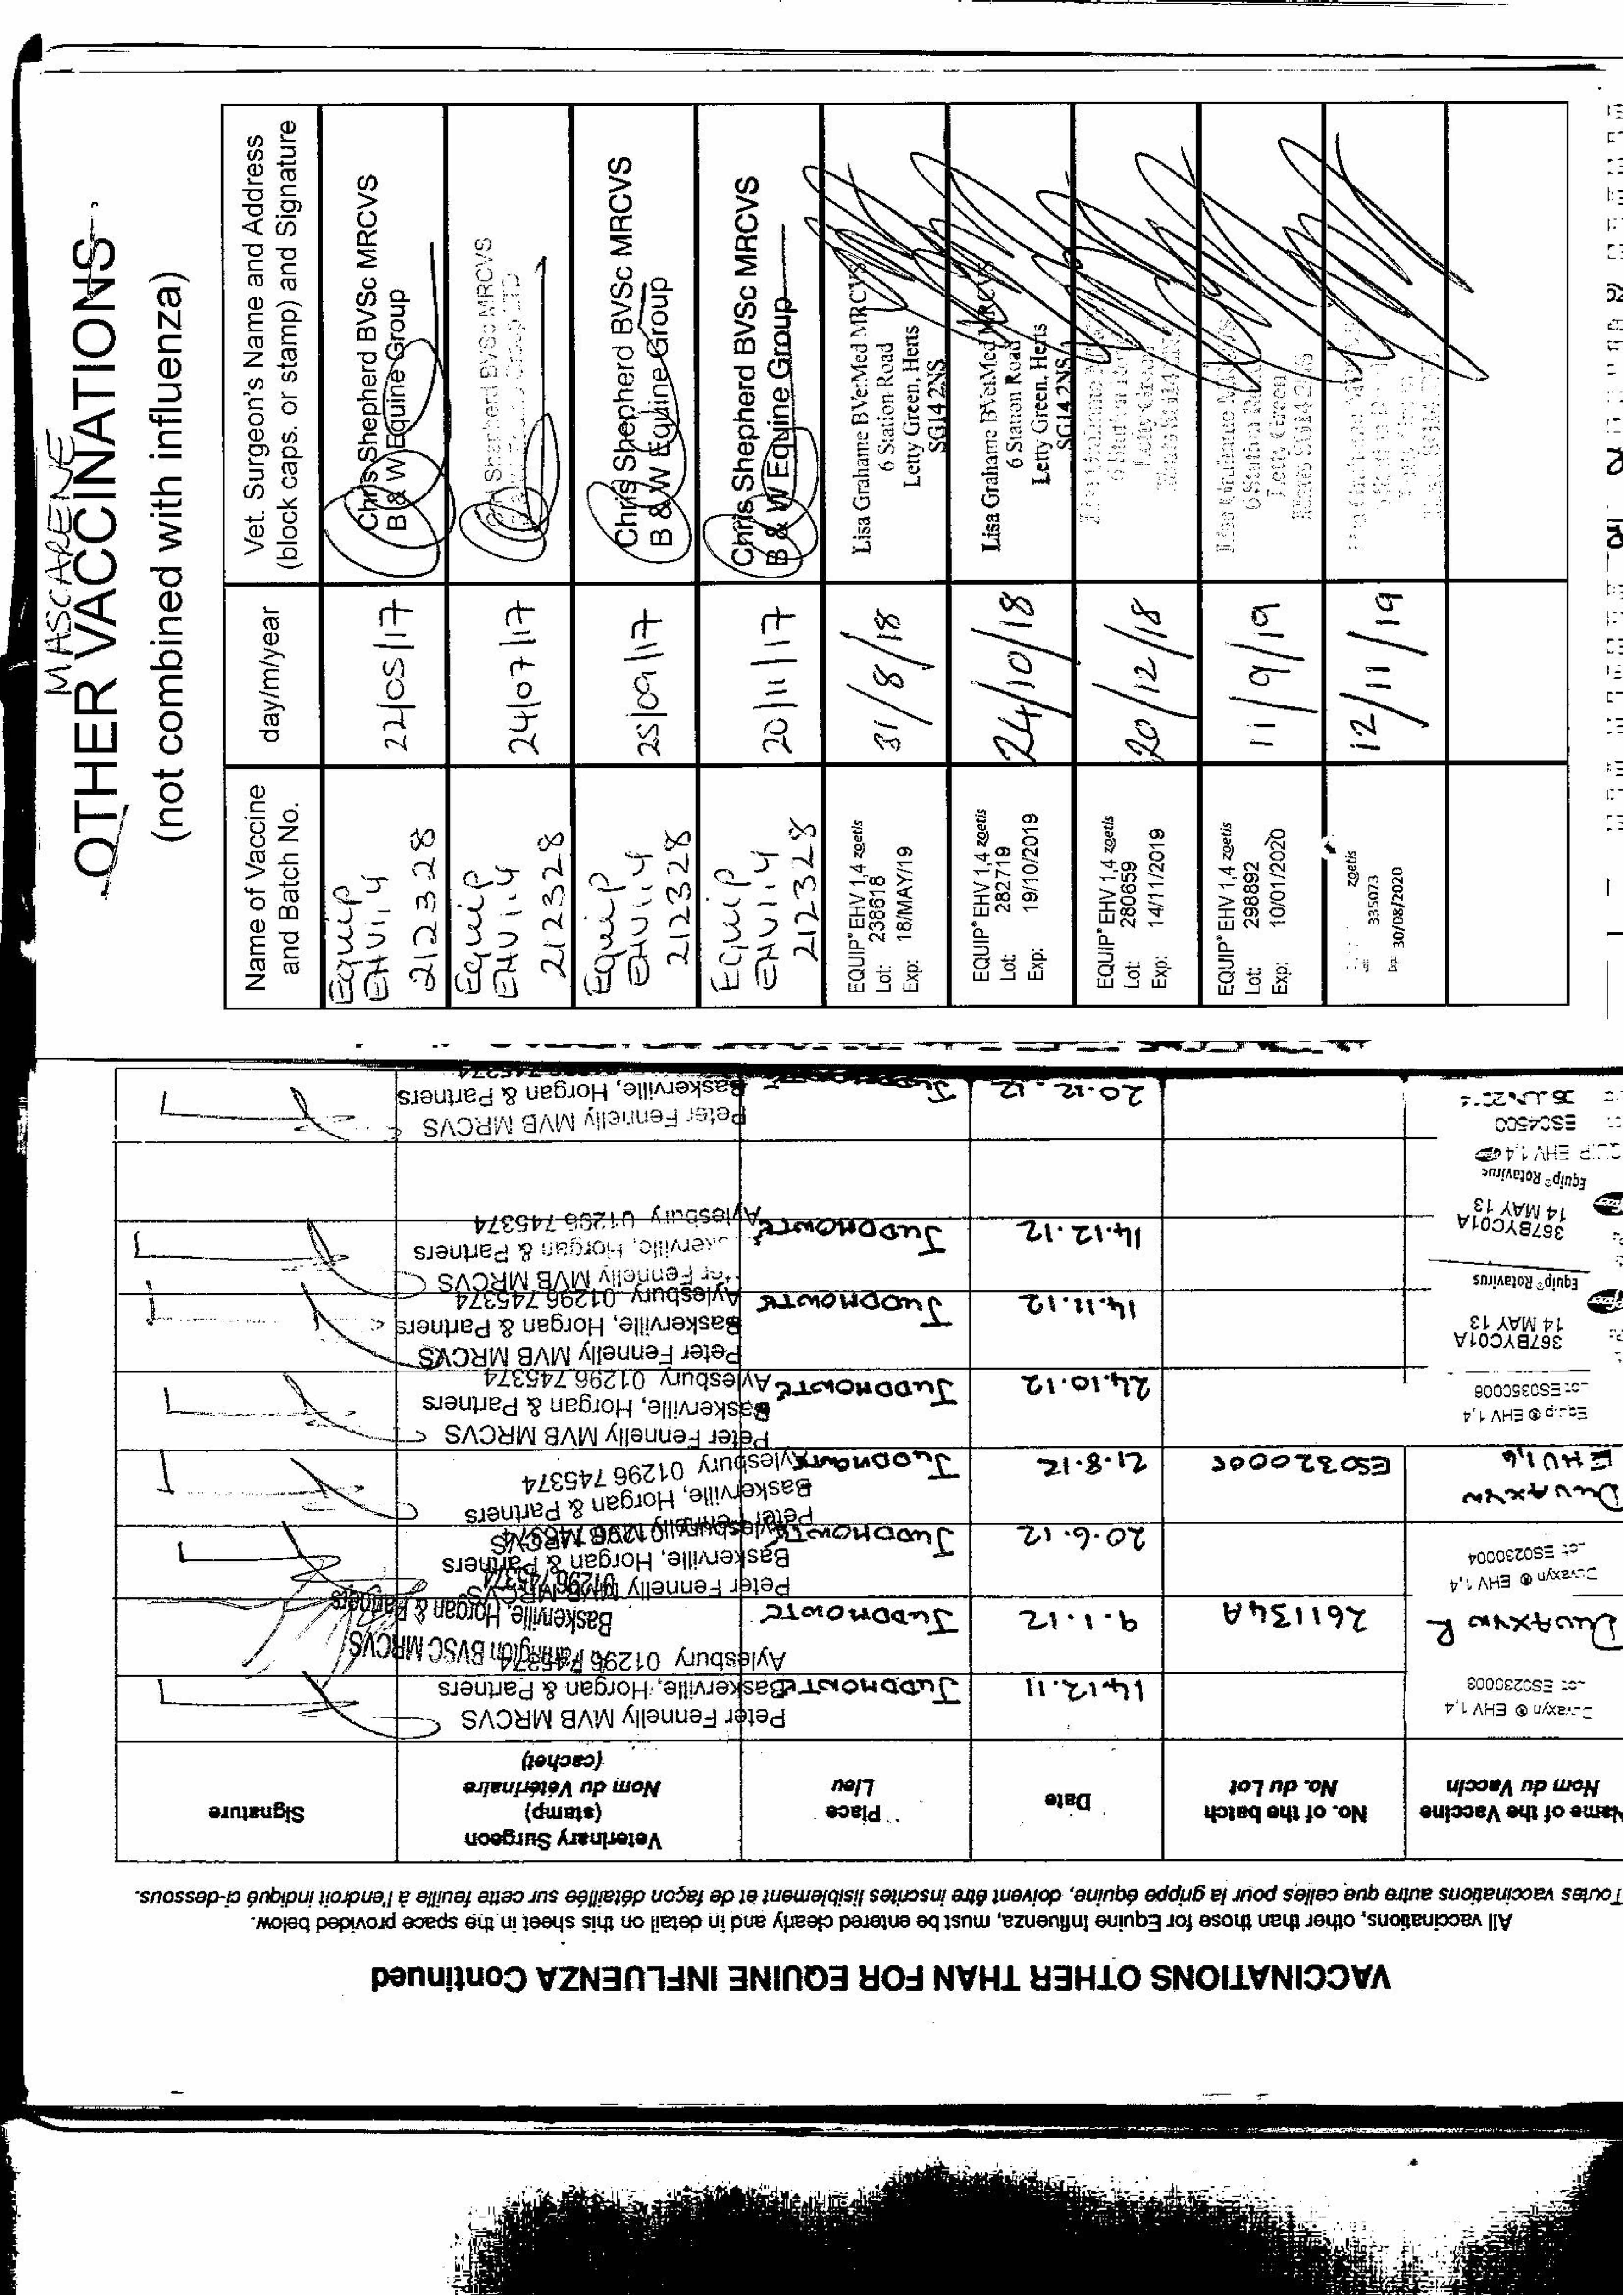 MASCARENE
OTHER VACCINATIONS
(not combined with influenza)
Name of Vaccine and Batch No.
day/m/year
Vet. Surgeon's Name and Address
(block caps. or stamp) and Signature
Equip
EHV1,4
212328
22/05/17
Chris Shepherd BVSc MRCVS
B & W Equine Group
Equip
EHV1,4
212328
24/07/17
Shepherd BVSc MRCVS
Equip
EHV1,4
212328
25/09/17
Chris Shepherd BVSc MRCVS
B & W Equine Group
Equip
EHV1,4
212328
20/11/17
Chris Shepherd BVSc MRCVS
B & W Equine Group
EQUIP® EHV 1,4 zoetis
Lot: 238618
Exp: 18/MAY/19
31/8/18
Lisa Grahame BVetMed MRCVS
6 Station Road
Letty Green, Herts
SG14 2NS
EQUIP® EHV 1,4 zoetis
Lot: 282719
Exp: 19/10/2019
24/10/18
Lisa Grahame BVetMed MRCVS
6 Station Road
Letty Green, Herts
SG14 2NS
EQUIP® EHV 1,4 zoetis
Lot: 280659
Exp: 14/11/2019
20/12/18
EQUIP® EHV 1,4 zoetis
Lot: 298892
Exp: 10/01/2020
11/9/19
6 Station
Letty Green
zoetis
335073
Exp: 30/08/2020
12/11/19
VACCINATIONS OTHER THAN FOR EQUINE INFLUENZA Continued
All vaccinations, other than those for Equine Influenza, must be entered clearly and in detail on this sheet in the space provided below.
Toutes vaccinations autre que celles pour la grippe équine, doivent être inscrites lisiblement et de façon détaillée sur cette feuille à l'endroit indiqué ci-dessous.
Name of the Vaccine
Nom du Vaccin
No. of the batch
No. du Lot
Date
Place
Lieu
Veterinary Surgeon
(stamp)
Nom du Vétérinaire
(cachet)
Signature
Duvaxyn ® EHV 1,4
Lot ES0230003
14.12.11
JUDDMONTE
Peter Fennelly MVB MRCVS
Baskerville, Horgan & Partners
Aylesbury 01296 745374
DUVAXYN R
261134A
9.1.12
JUDDMONTE
BVSC MRCVS
Baskerville, Horgan & Partners
01296 745374
Duvaxyn ® EHV 1,4
Lot ES0230004
20.6.12
JUDDMONTE
Peter Fennelly MVB MRCVS
Baskerville, Horgan & Partners
Aylesbury 01296 745374
DUVAXYN
EHV1,4
21.8.12
JUDDMONTE
Peter Fennelly MRCVS
Baskerville, Horgan & Partners
Aylesbury 01296 745374
Equip ® EHV 1,4
Lot ES0350006
24.10.12
JUDDMONTE
Peter Fennelly MVB MRCVS
Baskerville, Horgan & Partners
Aylesbury 01296 745374
367BYC01A
14 MAY 13
Equip® Rotavirus
14.11.12
JUDDMONTE
Peter Fennelly MVB MRCVS
Baskerville, Horgan & Partners
Aylesbury 01296 745374
367BYC01A
14 MAY 13
Equip® Rotavirus
14.12.12
JUDDMONTE
Fennelly MVB MRCVS
Horgan & Partners
Aylesbury 01296 745374
EHV 1,4
20.12.12
Peter Fennelly MVB MRCVS
Baskerville, Horgan & Partners